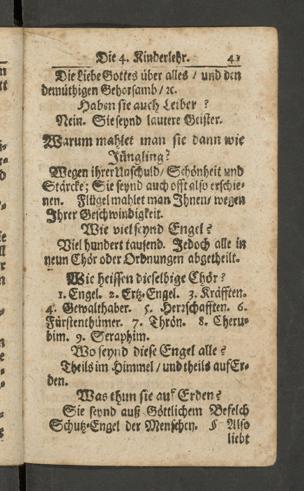 Die 4. Kinderlehr. 41
Die Liebe Gottes über alles / und den
demüthigen Gehorsamb / ꝛc.
Haben sie auch Leiber ?
Nein. Sie seynd lautere Geister.
Warum mahlet man sie dann wie
Jüngling?
Wegen ihrer Unschuld/ Schönheit und
Stärcke; Sie seynd auch offt also erschie-
nen. Flügel mahlet man Ihnen/ wegen
Ihrer Geschwindigkeit.
Wie viel seynd Engel?
Viel hundert tausend. Jedoch alle in
neun Chör oder Ordnungen abgetheilt.
Wie heissen dieselbige Chör?
1. Engel. 2. Ertz-Engel. 3. Kräfften.
4. Gewalthaber. 5. Herrschafften. 6.
Fürstenthümer. 7. Thrön. 8. Cheru-
bim. 9. Seraphim.
Wo seynd diese Engel alle?
Theils im Himmel / und theils auf Er-
den.
Was thun sie auf Erden?
Sie seynd auß Göttlichem Befelch
Schutz-Engel der Menschen. Also
liebt